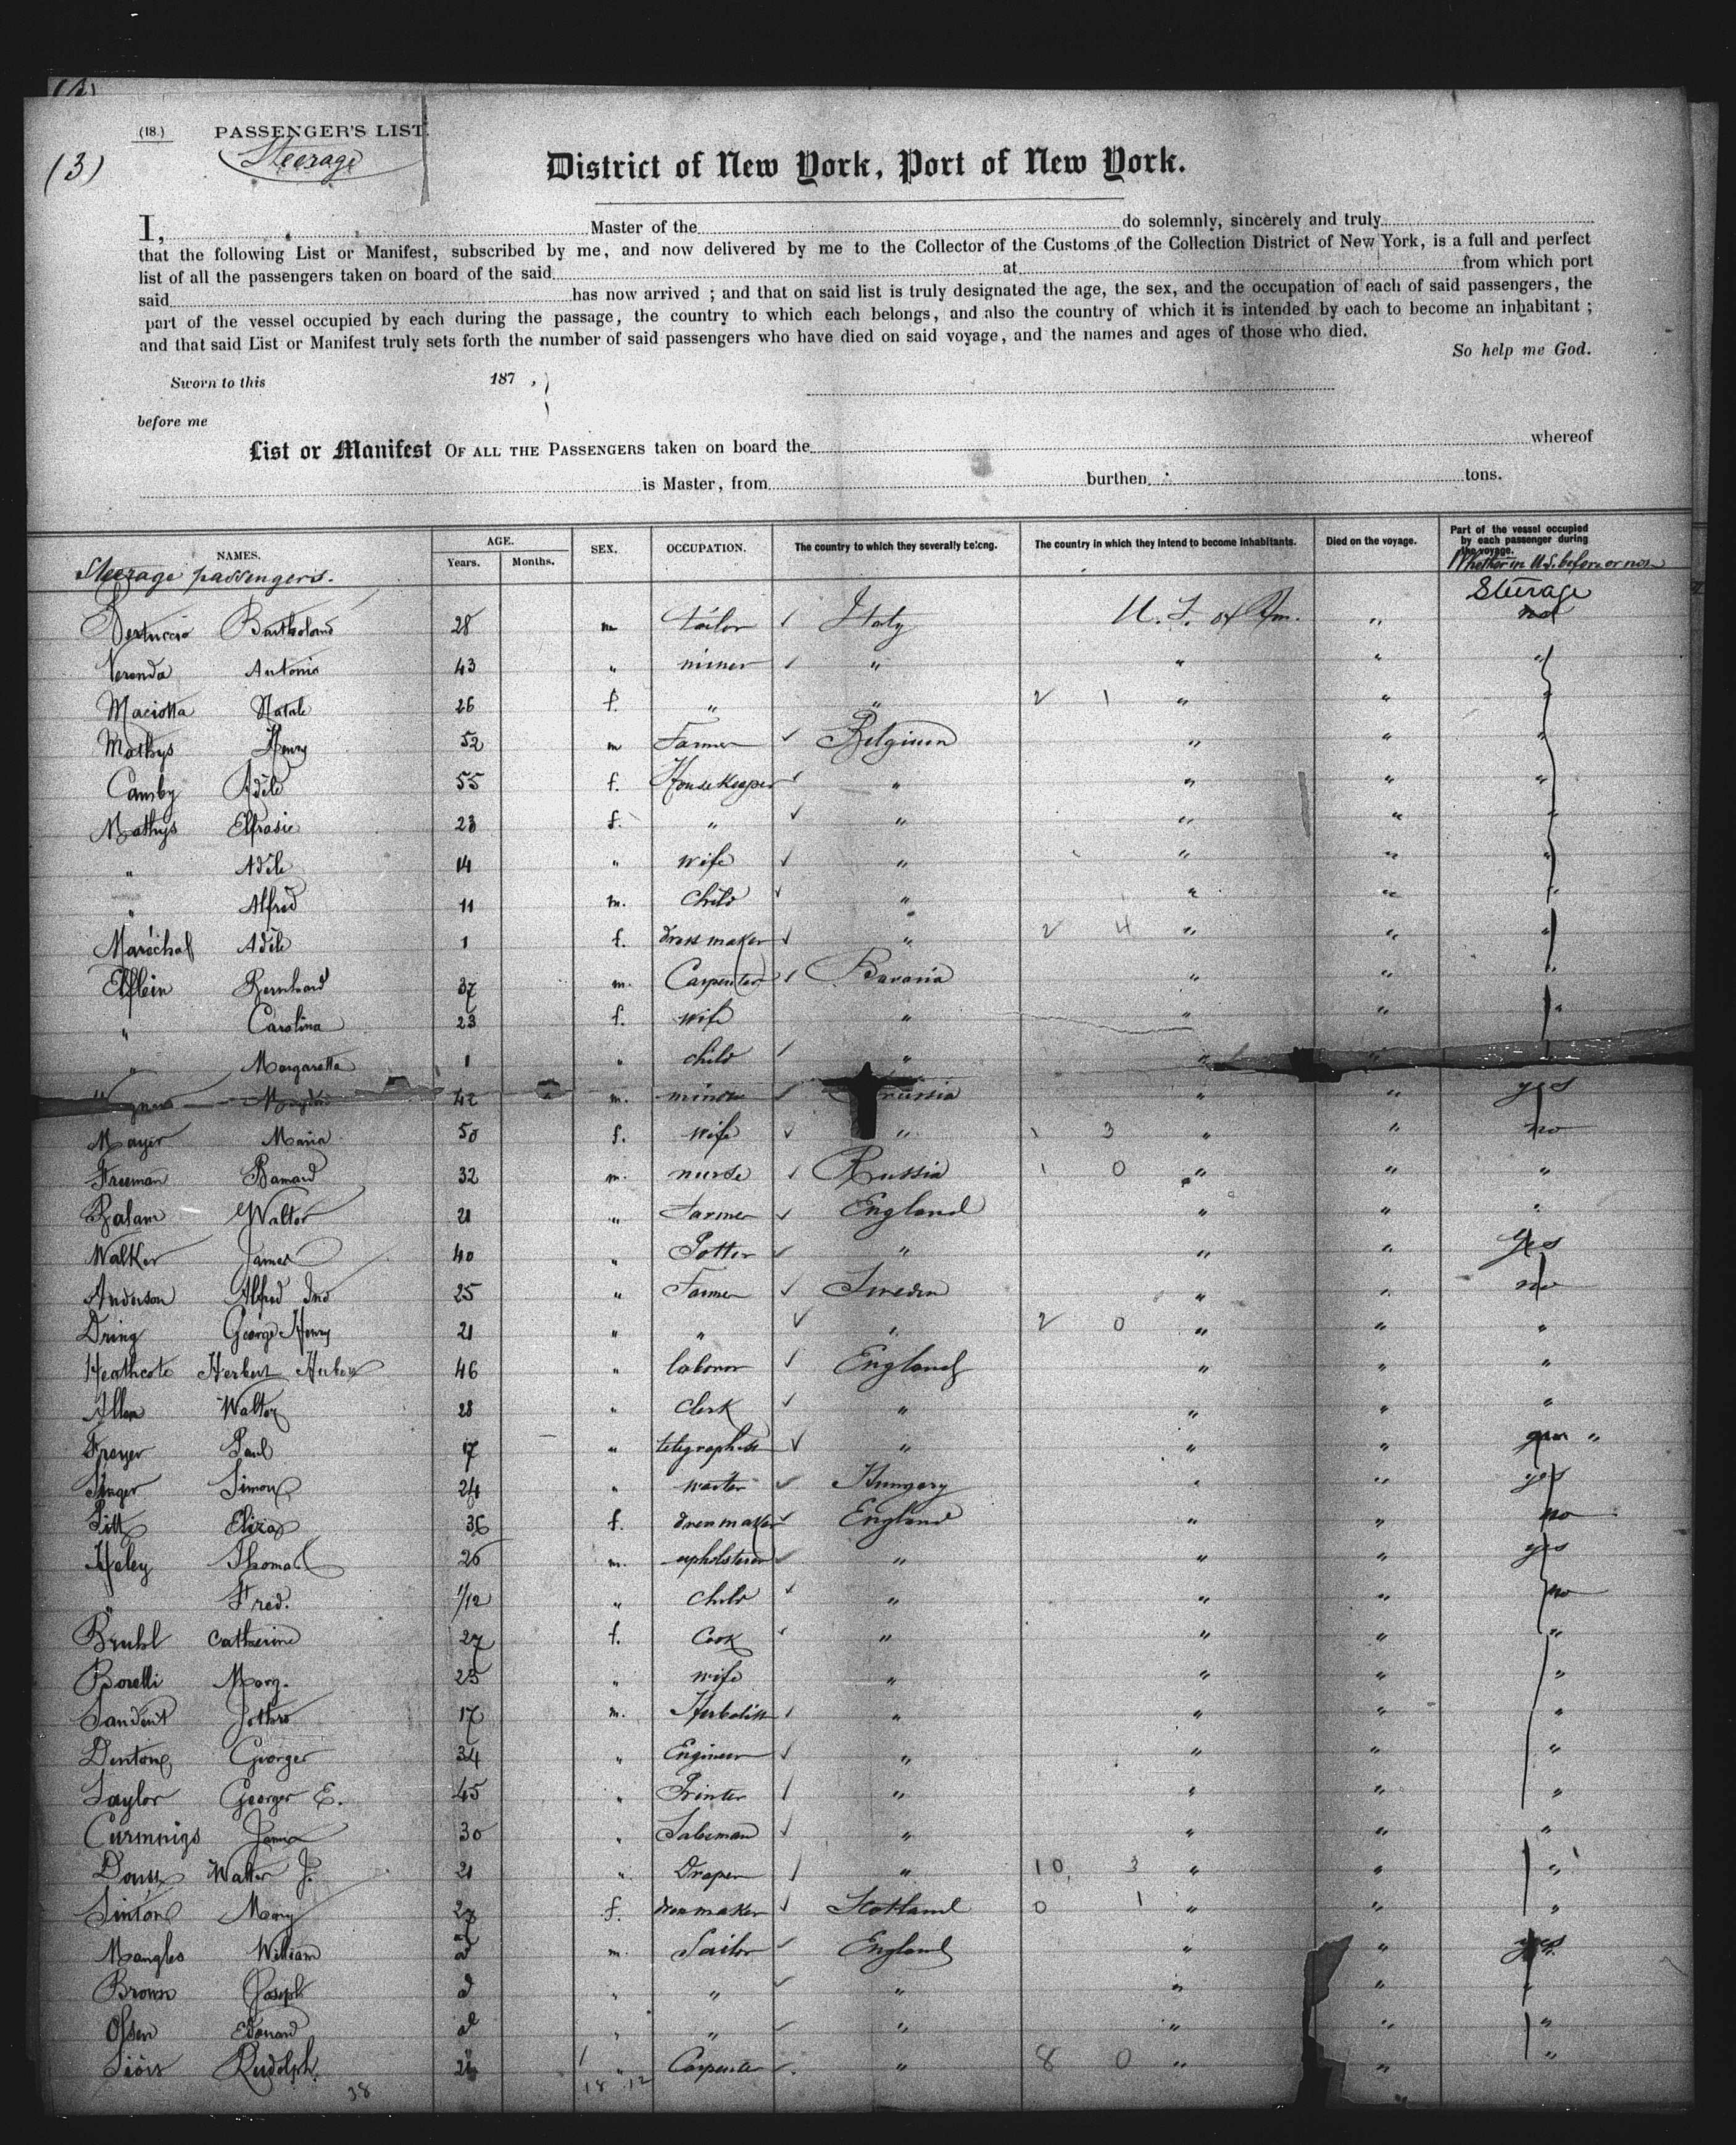 (18.) PASSENGER'S LIST.
(3) Steerage
District of New York, Port of New York.
I, Master of the do solemnly, sincerely and truly
that the following List or Manifest, subscribed by me, and now delivered by me to the Collector of the Customs of the Collection District of New York, is a full and perfect
list of all the passengers taken on board of the said at from which port
said has now arrived ; and that on said list is truly designated the age, the sex, and the occupation of each of said passengers, the
part of the vessel occupied by each during the passage, the country to which each belongs, and also the country of which it is intended by each to become an inhabitant ;
and that said List or Manifest truly sets forth the number of said passengers who have died on said voyage, and the names and ages of those who died.
So help me God.
Sworn to this 187 ,
before me
List or Manifest OF ALL THE PASSENGERS taken on board the whereof
is Master, from burthen tons.
NAMES. AGE. Years. Months. SEX. OCCUPATION. The country to which they severally belong. The country in which they intend to become inhabitants. Died on the voyage. Part of the vessel occupied by each passenger during the voyage.
Steerage passengers. Whether in U.S. before or not
Steerage
28 m tailor Italy U. S. of Am. " not
Veronda Antonio 43 " miner " " " "
Maciotta Natale 26 f. " " 2 1 " " "
Mathys Henry 52 m Farmer Belgium " " "
Camby Adèle 55 f. Housekeeper " " " "
Mathys Elfrasie 23 f. " " " " "
" Adèle 14 " wife " " " "
" Alfred 11 m. child " " " "
Maréchal Adèle 1 f. dressmaker " 2 4 " " "
Elflein Bernhard 37 m. Carpenter Bavaria " " "
" Carolina 23 f. wife " " " "
" Margaretta 1 " child " " " "
42 m. minor " " yes
Mayer Maria 50 f. wife " 1 3 " " no
Freeman Barnard 32 m. nurse Russia 1 0 " " "
Walter 21 " Farmer England " " "
Walker James 40 " Potter " " " Yes
Anderson Alfred 25 " Farmer Sweden " " no
Dring George Henry 21 " " " 2 0 " " "
Heathcote Herbert 46 " laborer England " " "
Allen Walter 28 " Clerk " " " "
Paul 17 " telegraphist " " " "
Singer Simon 24 " waiter Hungary " " yes
Pitt Eliza 36 f. dressmaker England " " no
Heley Thomas 26 m. upholsterer " " " yes
" Fred. 1/12 " child " " " no
Bruhl Catherine 27 f. Cook " " " "
Borelli Marg. 25 " wife " " " "
Jothro 17 m. Herbalist " " " "
Denton George 34 " Engineer " " " "
Taylor George E. 45 " Printer " " " "
Cummnigs James 30 " Salesman " " " "
Walter J. 21 " Draper " 10 3 " " "
Sinton Mary 27 f. dressmaker Scotland 0 1 " " "
Mangles William m. Sailor England " " yes
Brown Joseph " " " " " "
Olsen Edouard " " " " " "
Rudolph. " Carpenter " 8 0 " " "
38 18 12